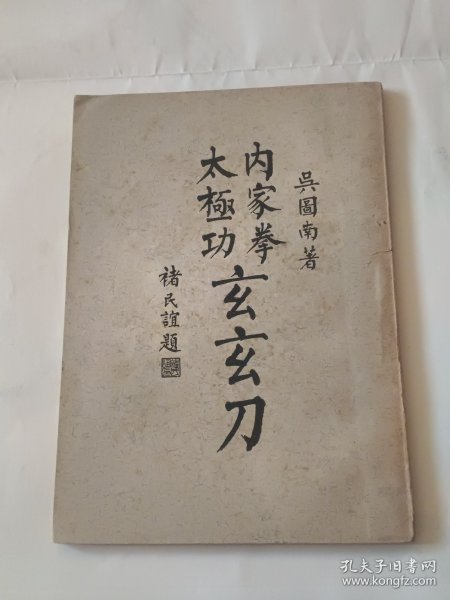 吳圖南著
内家拳
太極功
玄玄刀
褚民誼題
孔夫子旧书网
www.kongfz.com